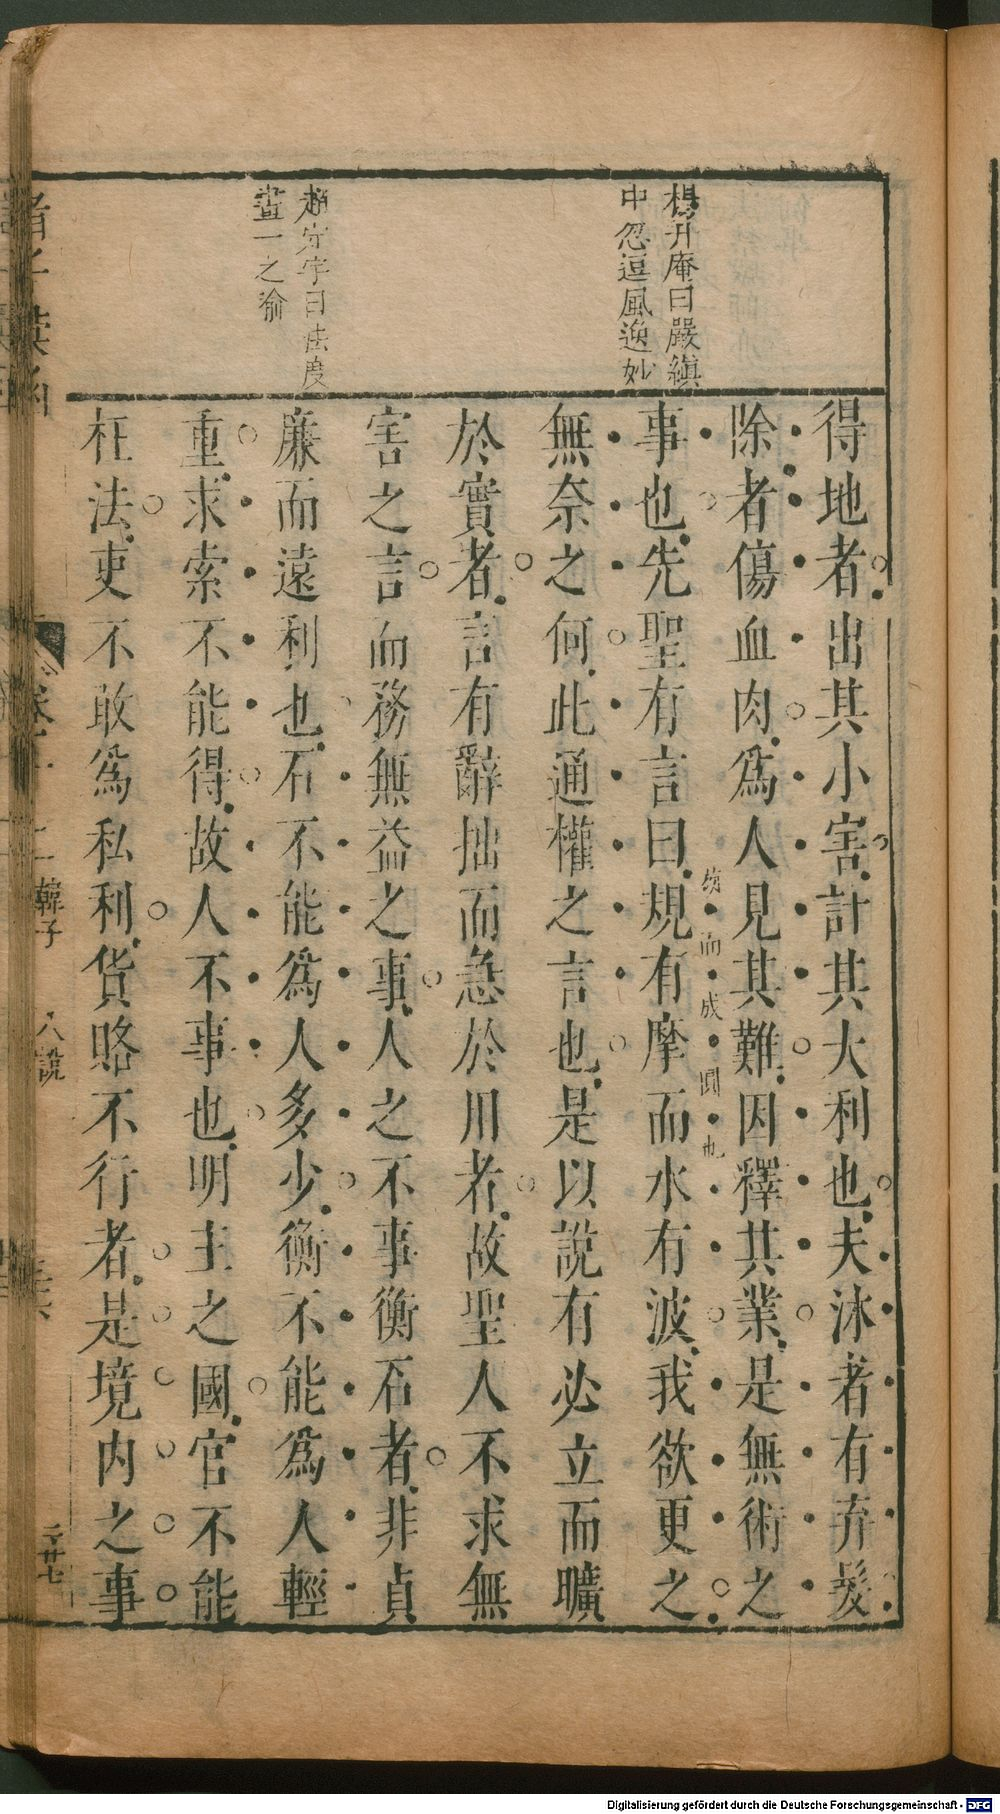 楊升庵曰嚴縝
中忽逗風逸妙
趙定宇曰法度
畫一之喻
得地者出其小害計其大利也夫沐者有弃髮
除者傷血肉爲人見其難因釋其業是無術之
事也先聖有言曰規有摩而水有波我欲更之
而成圓也
無奈之何此通權之言也是以說有必立而曠
於實者言有辭拙而急於用者故聖人不求無
害之言而務無益之事人之不事衡石者非貞
廉而遠利也石不能爲人多少衡不能爲人輕
重求索不能得故人不事也明主之國官不能
枉法吏不敢爲私利貨賂不行者是境內之事
韓子
八說
Digitalisierung gefördert durch die Deutsche Forschungsgemeinschaft - DFG